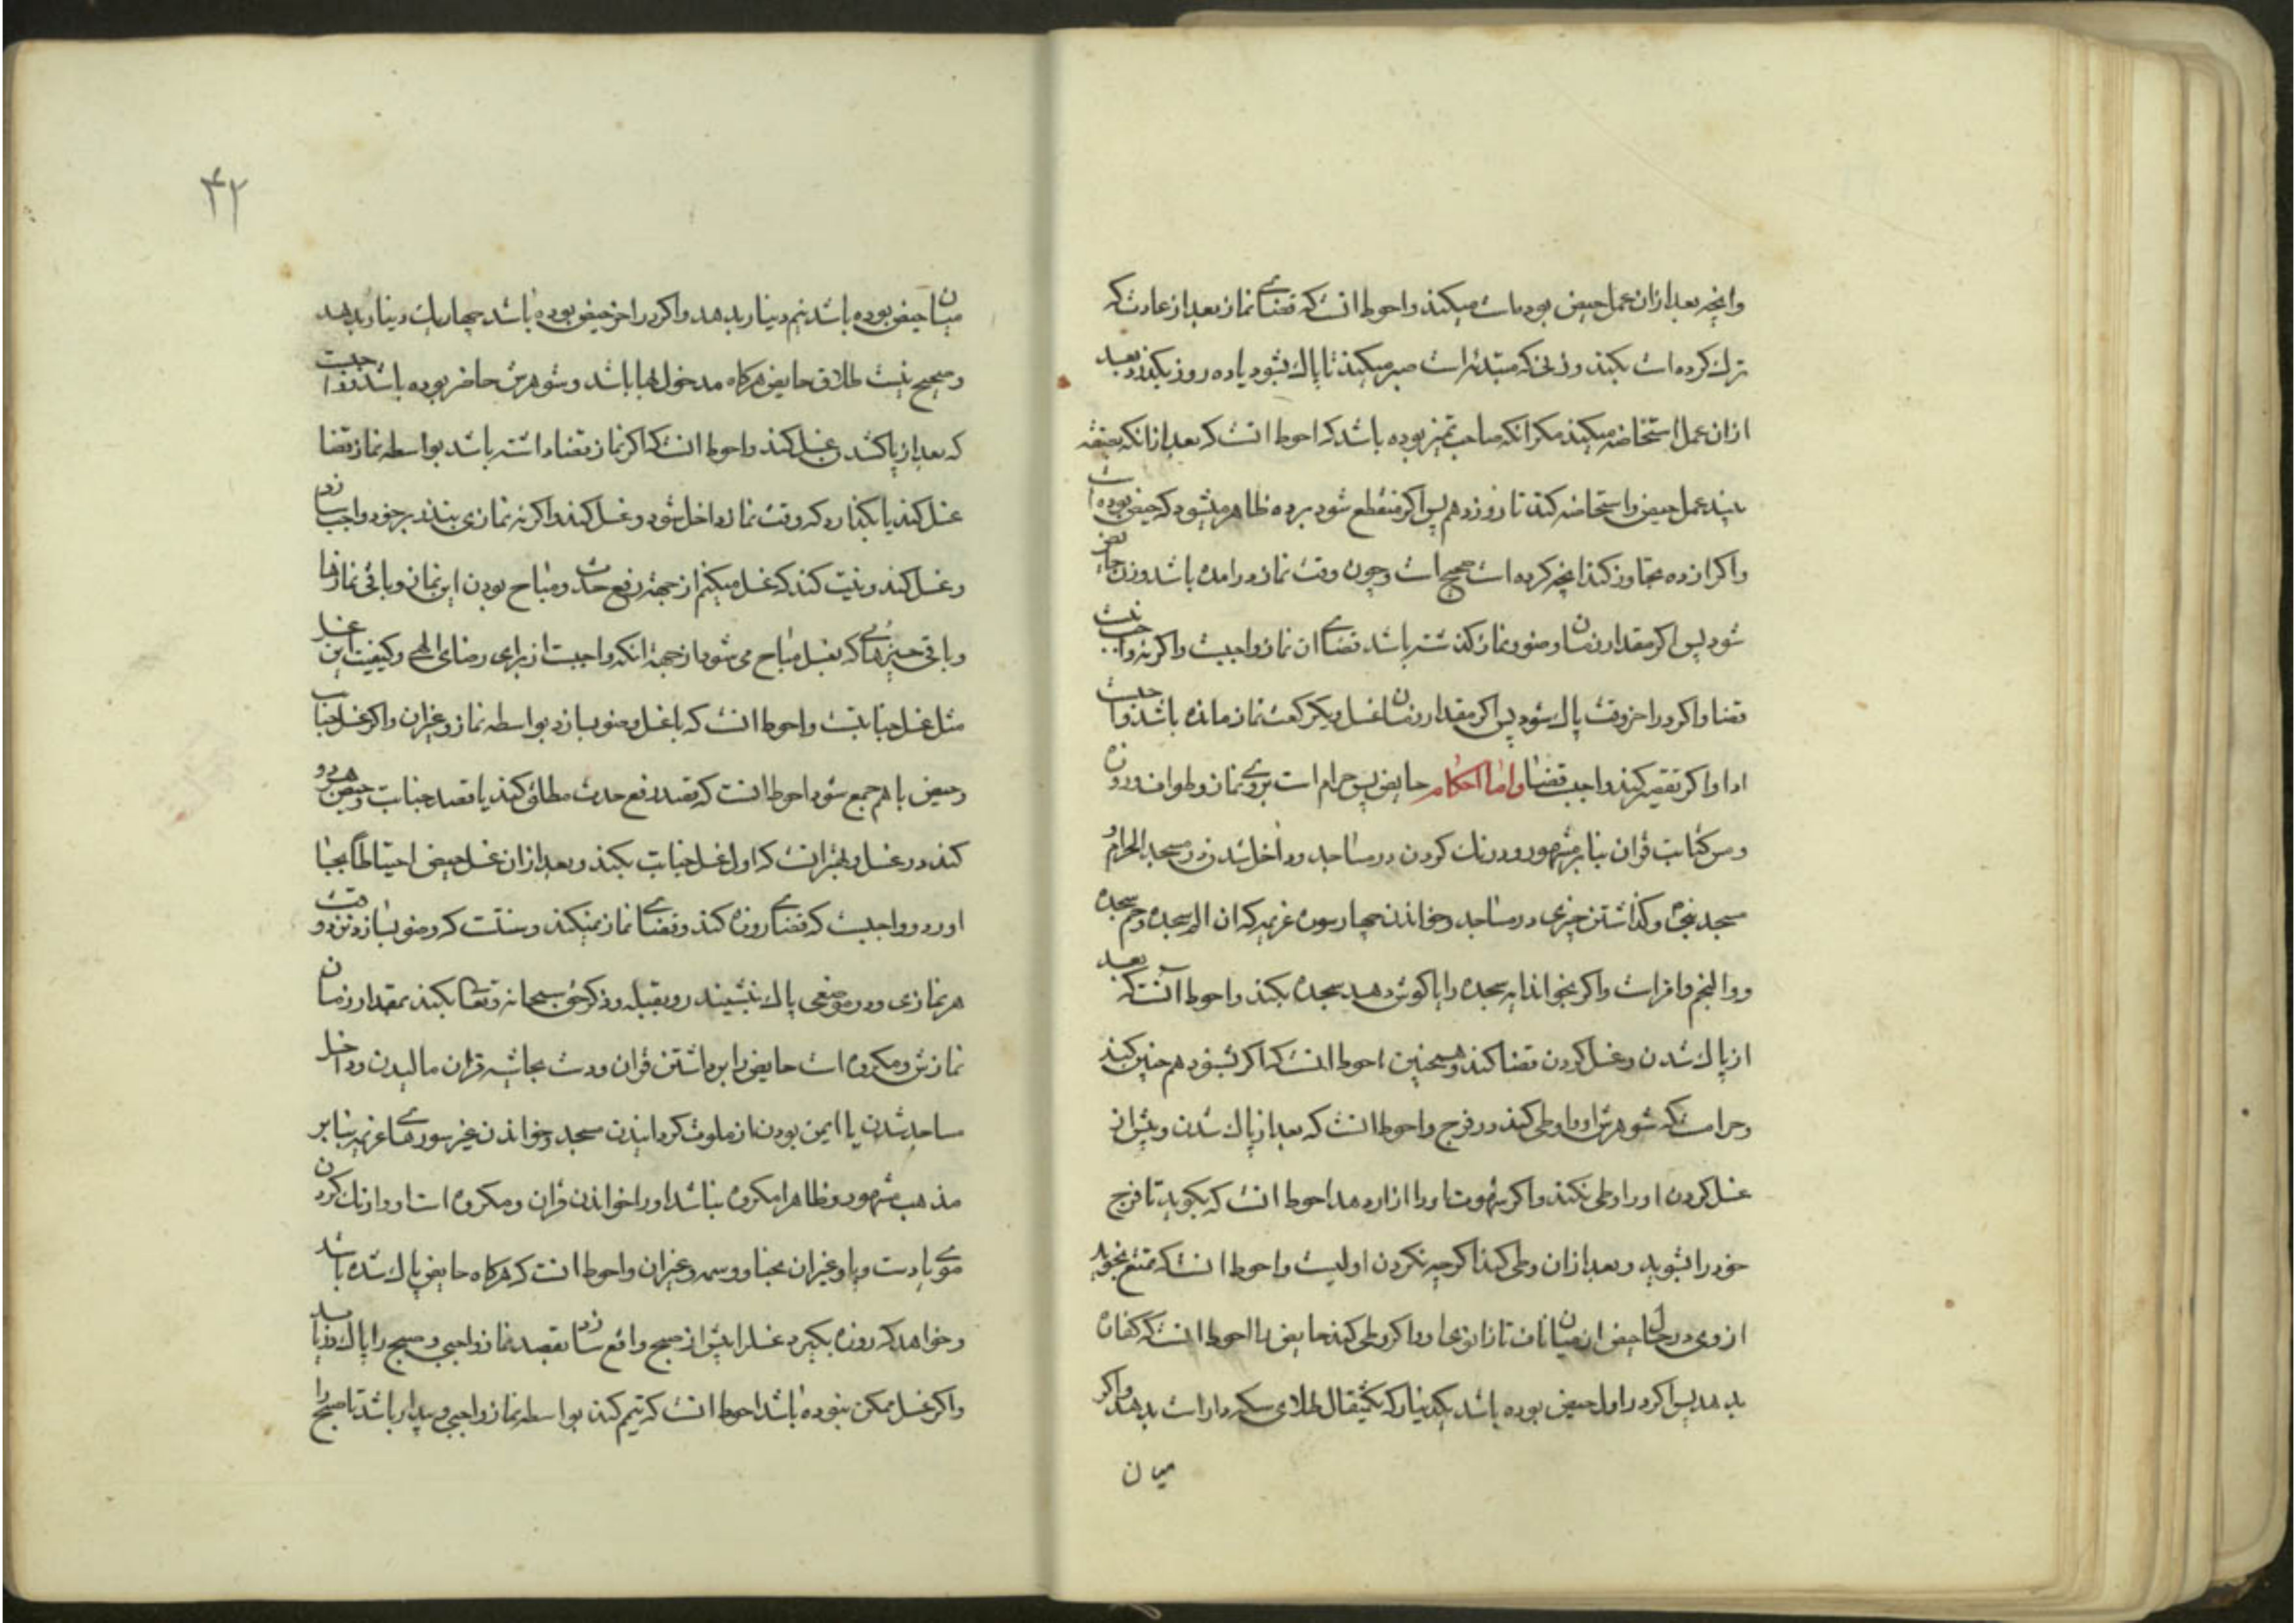 وانچه بعد ازان عمل حیض بوده است میکند و احوط انست که قضای نماز بعد از عادت که
ترک کرده است بکند و زنی که مبتدئه است صبر میکند تا پاک شود یا ده روز بگذرد و بعد
ازان عمل استحاضه میکند مکر انکه صاحب تمیز بوده باشد که احوط انست که بعد ازانکه بصفة
بیند عمل حیض و استحاضه کند تا روز دهم پس اکر منقطع شود بر ده ظاهر میشود که حیض بوده است
و اکر از ده تجاوز کند انچه کرده است صحیح است و چون وقت نماز درامده باشد و زن حایض
شود پس اکر مقدار زمان وضو و نماز کذشته باشد قضای ان نماز واجبست و اکر نه واجب نیست
قضا و اکر در اخر وقت پاک شود پس اکر مقدار زمان غسل و یکرکعت نماز مانده باشد واجبست
ادا و اکر تقصیر کند واجبست قضا و اما احکام حایض پس حرام است بر وی نماز و طواف و روزه
و مس کتابت قران بنابر مشهور و درنک کردن در مساجد و داخل شدن در مسجد الحرام و
مسجد نبی و کذاشتن چیزی در مساجد و خواندن چهار سوره عزیمه که ان الم سجده و حم سجده
و و النجم و اقرا است و اکر بخواند ایه سجده را یا کوش دهد سجده بکند و احوط آنست که بعد
از پاک شدن و غسل کردن قضا کند و همچنین احوط انست که اکر بشنود هم چنین کند
و حرامست که شوهرش او را وطی کند در فرج و احوط انست که بعد از پاک شدن و پیش از
غسل کردن او را وطی نکند و اکر شهوت او را ازار دهد احوط انست که بکوید تا فرج
خود را بشوید و بعد ازان وطی کند اکرچه نکردن اولیست و احوط انست که تمتع نجوید
از وی در حال حیض از میان ناف تا زانوی او و اکر وطی کند حایض را احوط انست که کفاره
بدهد پس اکر در اول حیض بوده باشد یکدینار که یکمثقال طلای سکه دار است بدهد و اکر
میان
۴۲
میان حیض بوده باشد نیم دینار بدهد و اکر در اخر حیض بوده باشد چهار یک دینار بدهد
و صحیح نیست طلاق حایض هرکاه مدخول بها باشد و شوهرش حاضر بوده باشد و واجبست
که بعد از پاک شدن غسل کند و احوط انست که اکر نماز قضا داشته باشد بواسطه نماز قضا
غسل کند یا بکذارد که وقت نماز داخل شود و غسل کند و اکر نه نمازی بنذر بر خود واجب سازد
و غسل کند و نیت کند که غسل میکنم از جهة رفع حدث و مباح بودن این نماز و باقی نمازها
و باقی چیزهای که بغسل مباح می شود از جهة انکه واجبست از برای رضای الهی و کیفیت این غسل
مثل غسل جنابتست و احوط انست که با غسل وضو بسازد بواسطه نماز و غیران و اکر غسل جنابت
و حیض با هم جمع شود احوط انست که قصد رفع حدث مطلق کند یا قصد جنابت و حیض هر دو
کند در غسل و بهتر انست که اول غسل جنابت بکند و بعد ازان غسل حیض احتیاطًا بجا
اورد و واجبست که قضای روزه کند و قضای نماز نمیکند و سنتست که وضو بسازد نزد وقت
هر نمازی و در موضعی پاک بنشیند رو بقبله و ذکر حق سبحانه و تعالی بکند بمقدار زمان
نمازش و مکروه است حایض را برداشتن قران و دست بحاشیه قران مالیدن و داخل
مساجد شدن با ایمن بودن از ملوث کردانیدن مسجد و خواندن غیر سورهای عزیمه بنابر
مذهب مشهور و ظاهرا مکروه نباشد او را خواندن قران و مکروه است او را رنک کردن
موی یا دست و پا و غیران بحنا و وسمه و غیران و احوط انست که هرکاه حایض پاک شده باشد
و خواهد که روزه بکیرد غسل را پیش از صبح واقع سازد بقصد نماز واجبی و صبح را پاک دریابد
و اکر غسل ممکن نبوده باشد احوط انست که تیمم کند بواسطه نماز واجبی و بیدار باشد تا صبح را